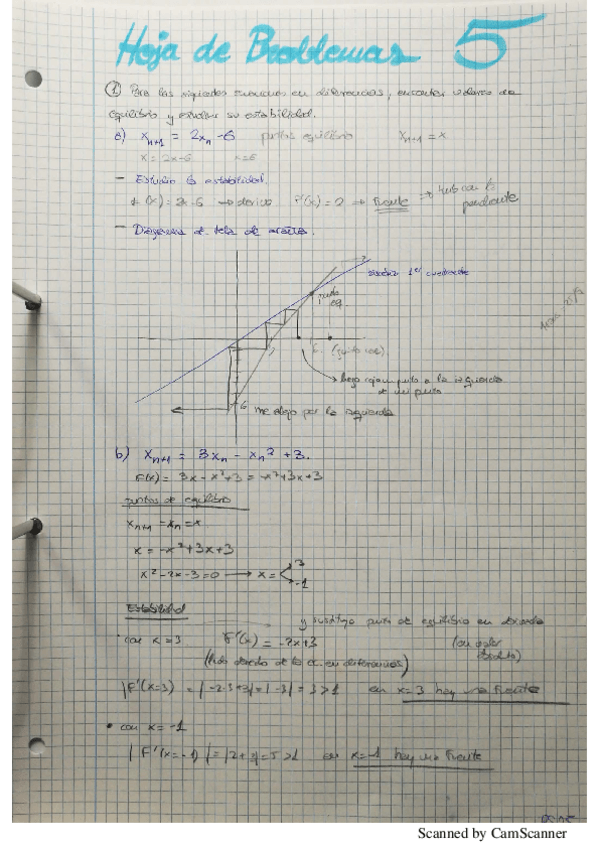 Hoja de Problemas 5
① Para las siguientes ecuaciones en diferencias, encontrar valores de
equilibrio y estudiar su estabilidad.
a) xₙ₊₁ = 2xₙ - 6 puntos equilibrio xₙ₊₁ = x
x = 2x - 6 x = 6
- Estudio la estabilidad.
f(x) = 2x - 6 → derivo F'(x) = 2 → Fuente → pendiente
- Diagrama de tela de araña.
1er cuadrante
punto eq.
6 (punto eq).
hago cojo un punto a la izquierda
-6 me alejo por la izquierda
b) xₙ₊₁ = 3xₙ - xₙ² + 3.
F(x) = 3x - x² + 3 = -x² + 3x + 3
puntos de equilibrio
xₙ₊₁ = xₙ = x
x = -x² + 3x + 3
x² - 2x - 3 = 0 → x = 3
-1
Estabilidad
y sustituyo punto de equilibrio en derivada
• con x = 3 F'(x) = -2x + 3 (en valor
absoluto)
(hago derivada de la ec. en diferencias)
|F'(x=3)| = |-2·3+3| = |-3| = 3 > 1 en x = 3 hay una Fuente
• con x = -1
|F'(x=-1)| = |2+3| = 5 > 1 en x = -1 hay una Fuente
Scanned by CamScanner